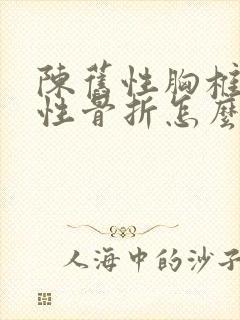 陳舊性胸椎
性骨折怎麼
人海中的沙子